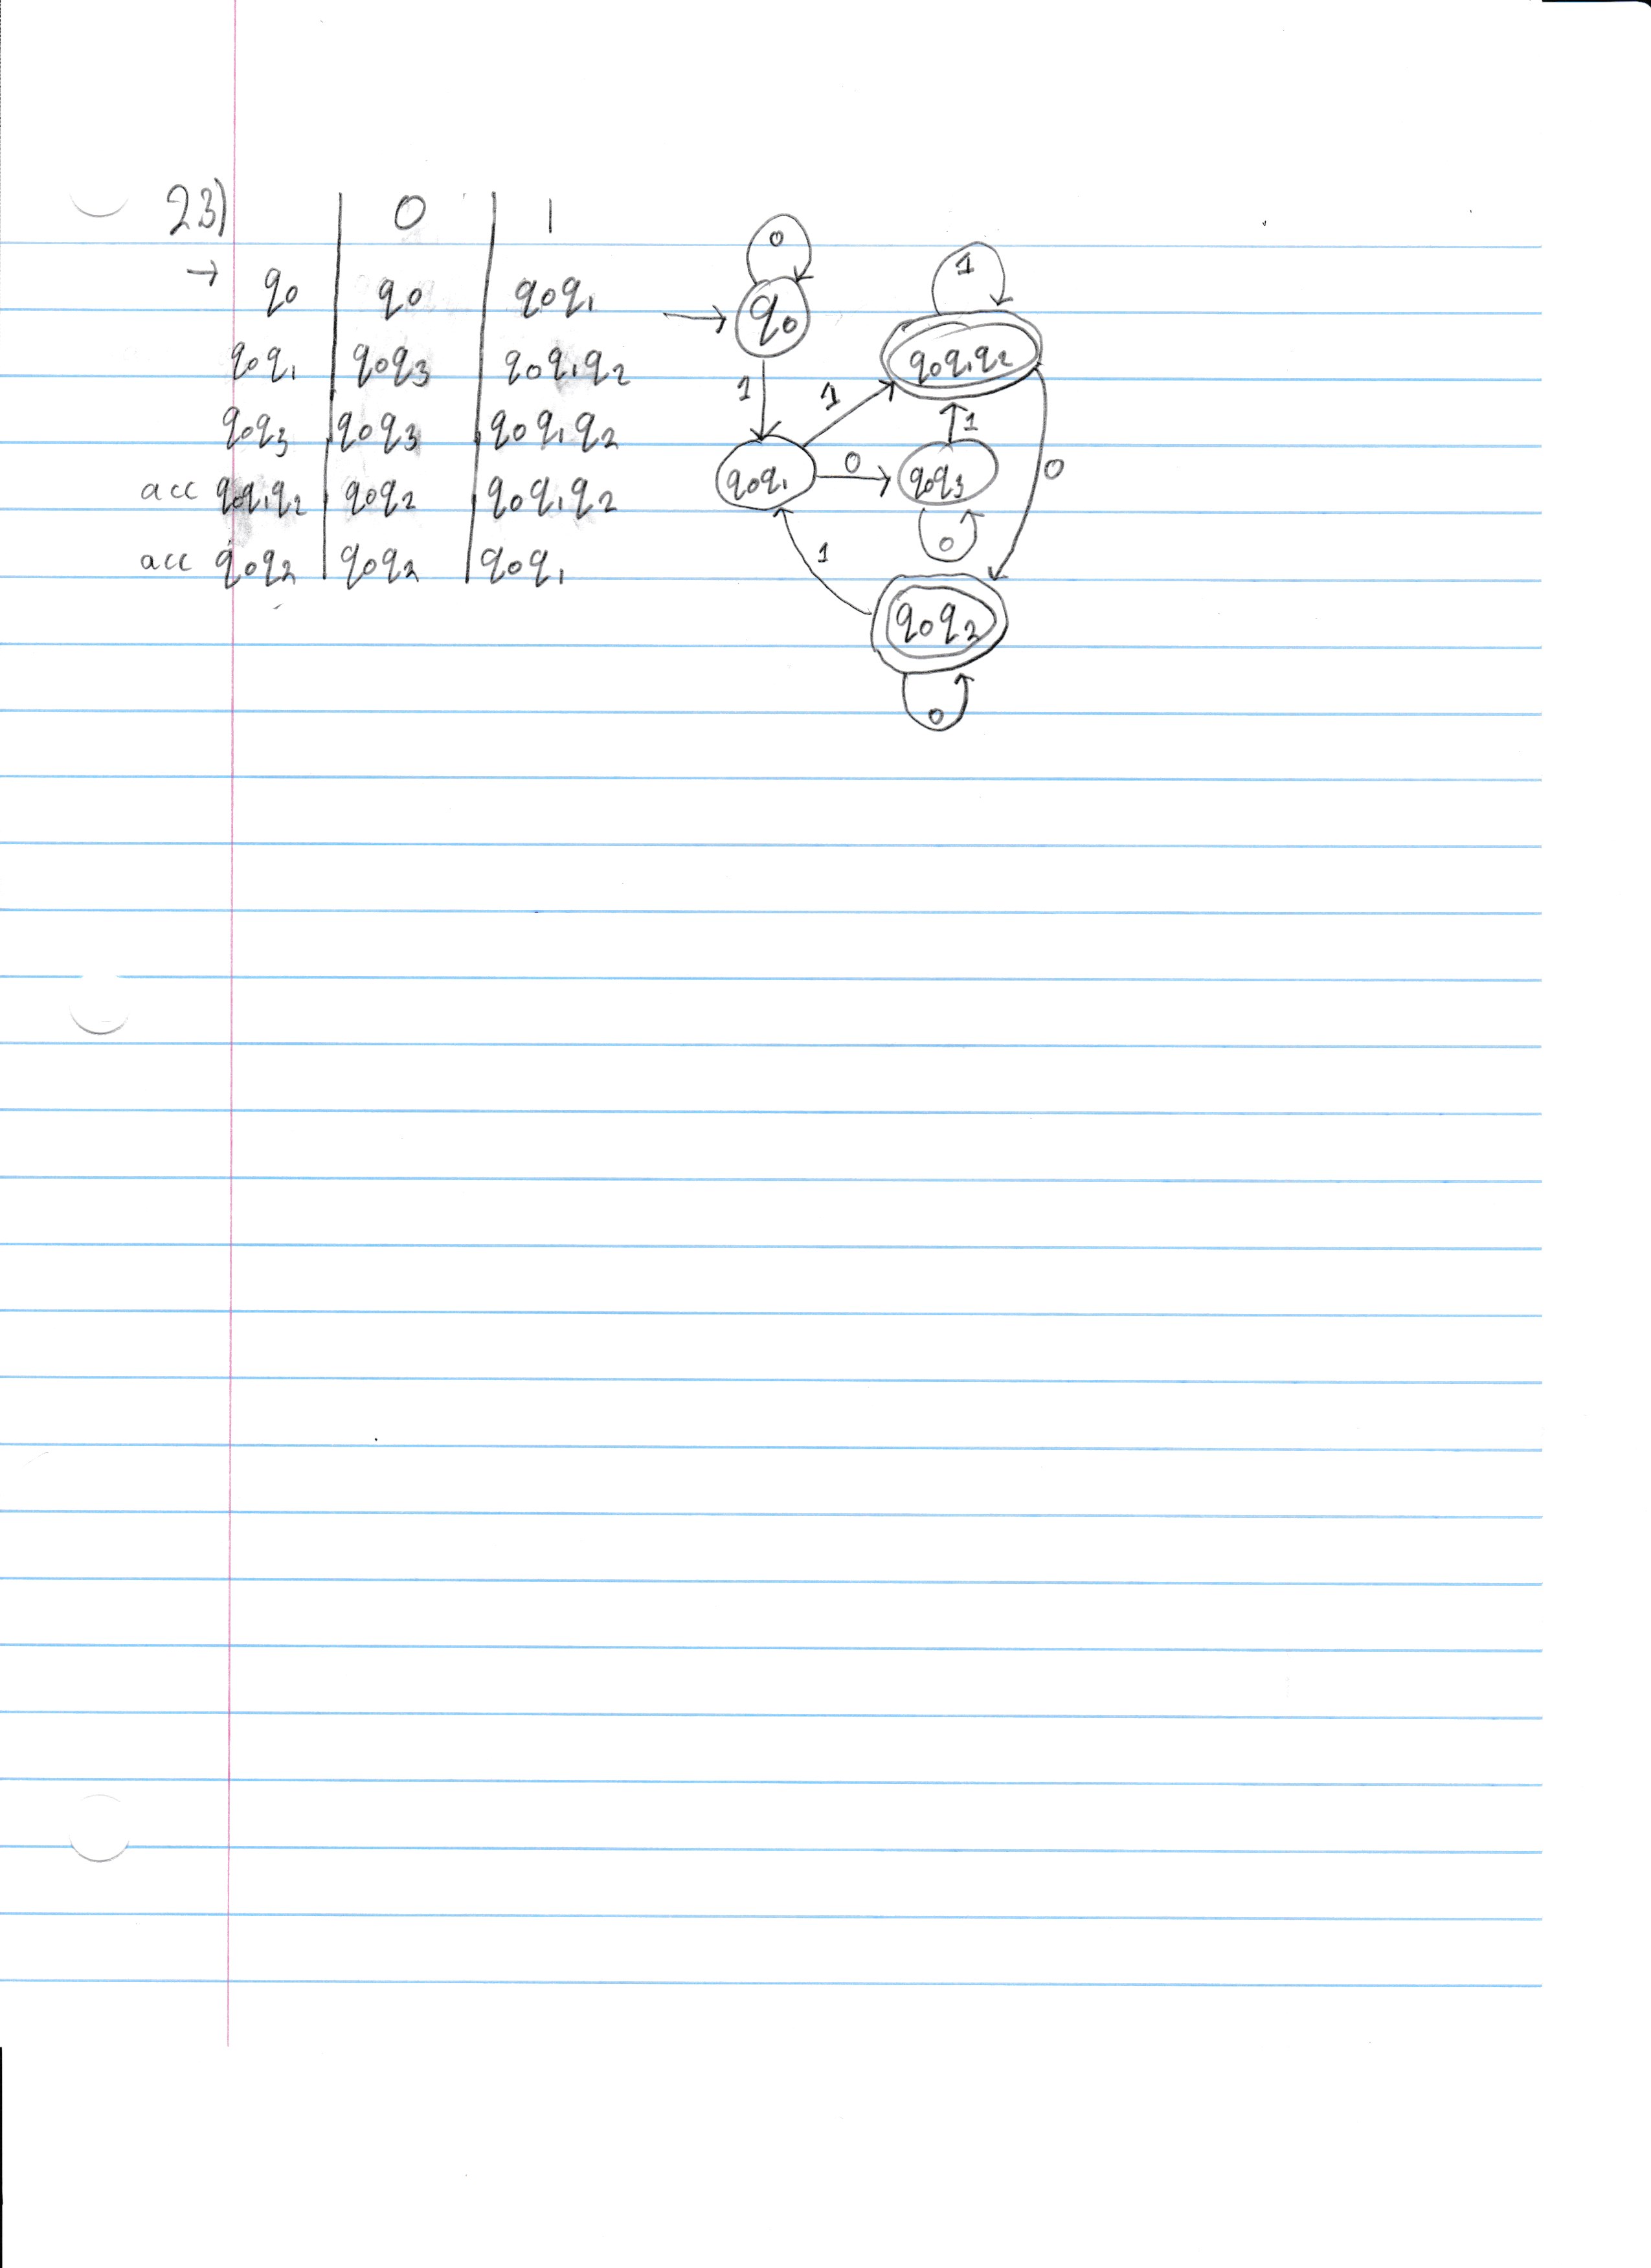 23) 0 1
→ q0 q0 q0q1
q0q1 q0q3 q0q1q2
q0q3 q0q3 q0q1q2
acc q0q1q2 q0q2 q0q1q2
acc q0q2 q0q2 q0q1
0
q0
1
1
q0q1q2
1
1
0
q0q1
0
q0q3
0
1
q0q2
0